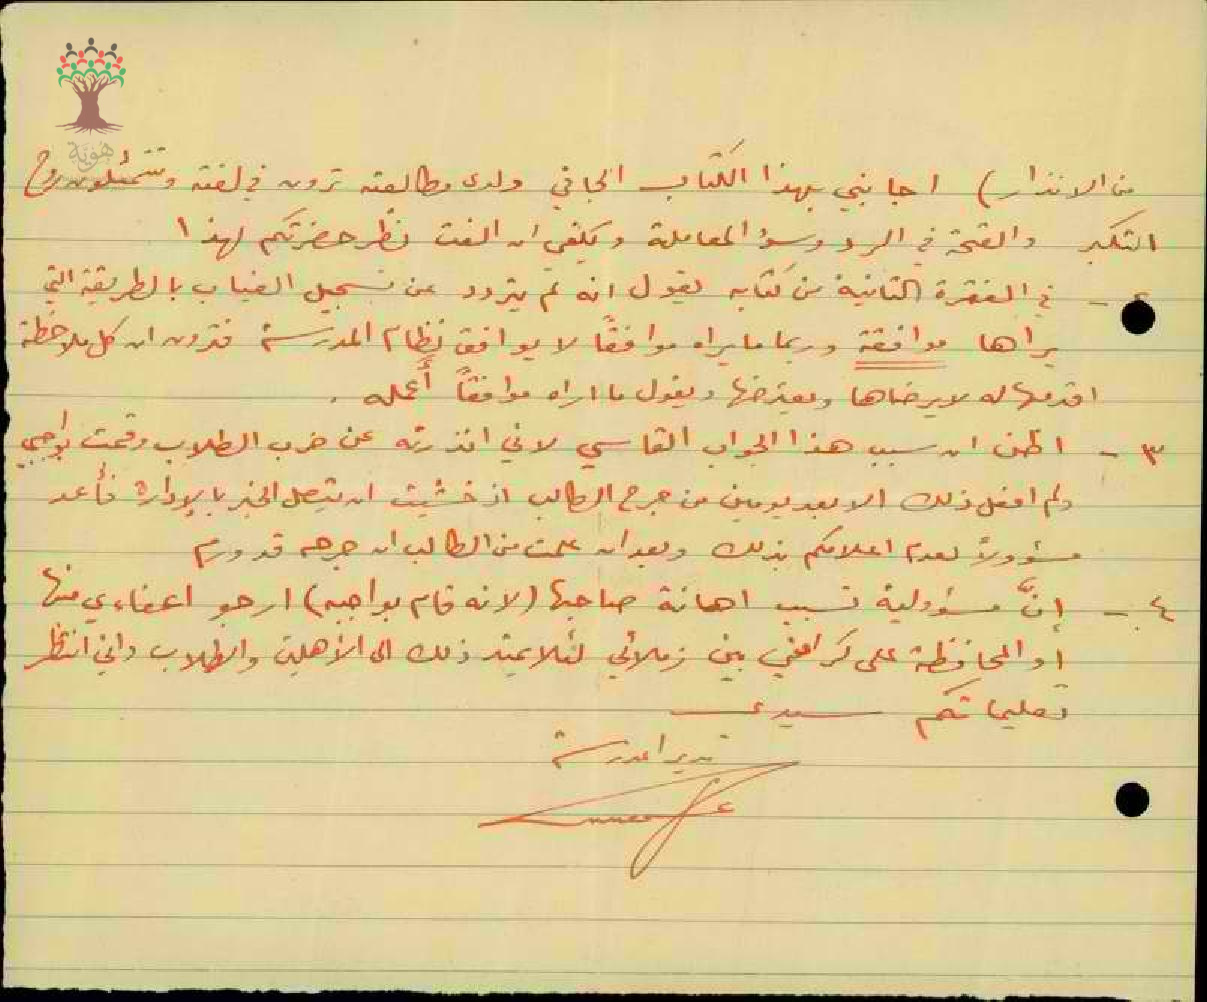 هوية
من الانذار) اجابني بهذا الكتاب الجافي ولدى مطالعته ترون في لغته وتتمثلون روح
التكبر والقحة في الرد وسوء المعاملة ويكفي ان الفت نظر حضرتكم لهذا
٢ - في الفقرة الثانية من كتابه يقول انه لم يتردد عن تسجيل الغياب بالطريقة التي
يراها موافقة وربما ما يراه موافقاً لا يوافق نظام المدرسة فترون ان كل ملاحظة
اقدمها له لا يرضاها ويعترضها ويقول ما اراه موافقاً أعمله .
٣ - اظن ان سبب هذا الجواب القاسي لاني انذرته عن ضرب الطلاب وقمت بواجبي
ولم افعل ذلك الا بعد يومين من جرح الطالب اذ خشيت ان يتصل الخبر بالإدارة فأعد
مسؤولاً لعدم اعلامكم بذلك وبعد ان علمت من الطالب ان جرحه قد ورم
٤ - إنَّ مسؤولية تسبب اهانة صاحبها (لانه قام بواجبه) ارجو اعفاءي منها
أو المحافظة على كرامتي بين زملائي لئلا يمتد ذلك الى الأهلين والطلاب واني انتظر
تعليماتكم سيدي
مدير المدرسة